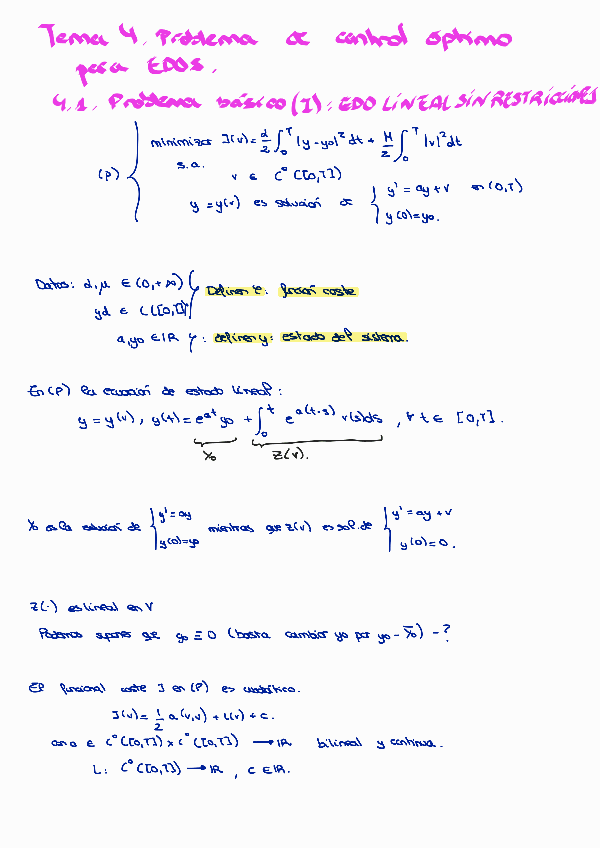 Tema 4. Problema de control óptimo
para EDOS.
4.1. Problema básico (I): EDO LINEAL SIN RESTRICCIONES
(P) { minimizar J(v) = α/2 ∫₀ᵀ |y - yd|² dt + μ/2 ∫₀ᵀ |v|² dt
s.a.
v ∈ C⁰([0,T])
y = y(v) es solución de { y' = ay + v en (0,T)
y(0) = y₀.
Datos: α, μ ∈ (0,+∞) Definen J: función coste
yd ∈ C([0,T])
a, y₀ ∈ ℝ : definen y: estado del sistema.
En (P) la ecuación de estado lineal:
y = y(v), y(t) = e^{at} y₀ + ∫₀ᵗ e^{a(t-s)} v(s) ds, ∀ t ∈ [0,T].
Y₀ Z(v).
Y₀ es la solución de { y' = ay mientras que Z(v) es sol. de { y' = ay + v
y(0) = y₀ y(0) = 0.
Z(·) es lineal en V
Podemos suponer que y₀ ≡ 0 (basta cambiar yd por yd - Y₀) - ?
El funcional coste J en (P) es cuadrático.
J(v) = 1/2 a(v,v) + L(v) + c.
con a ∈ C⁰([0,T]) × C⁰([0,T]) → ℝ bilineal y continua.
L: C⁰([0,T]) → ℝ, c ∈ ℝ.